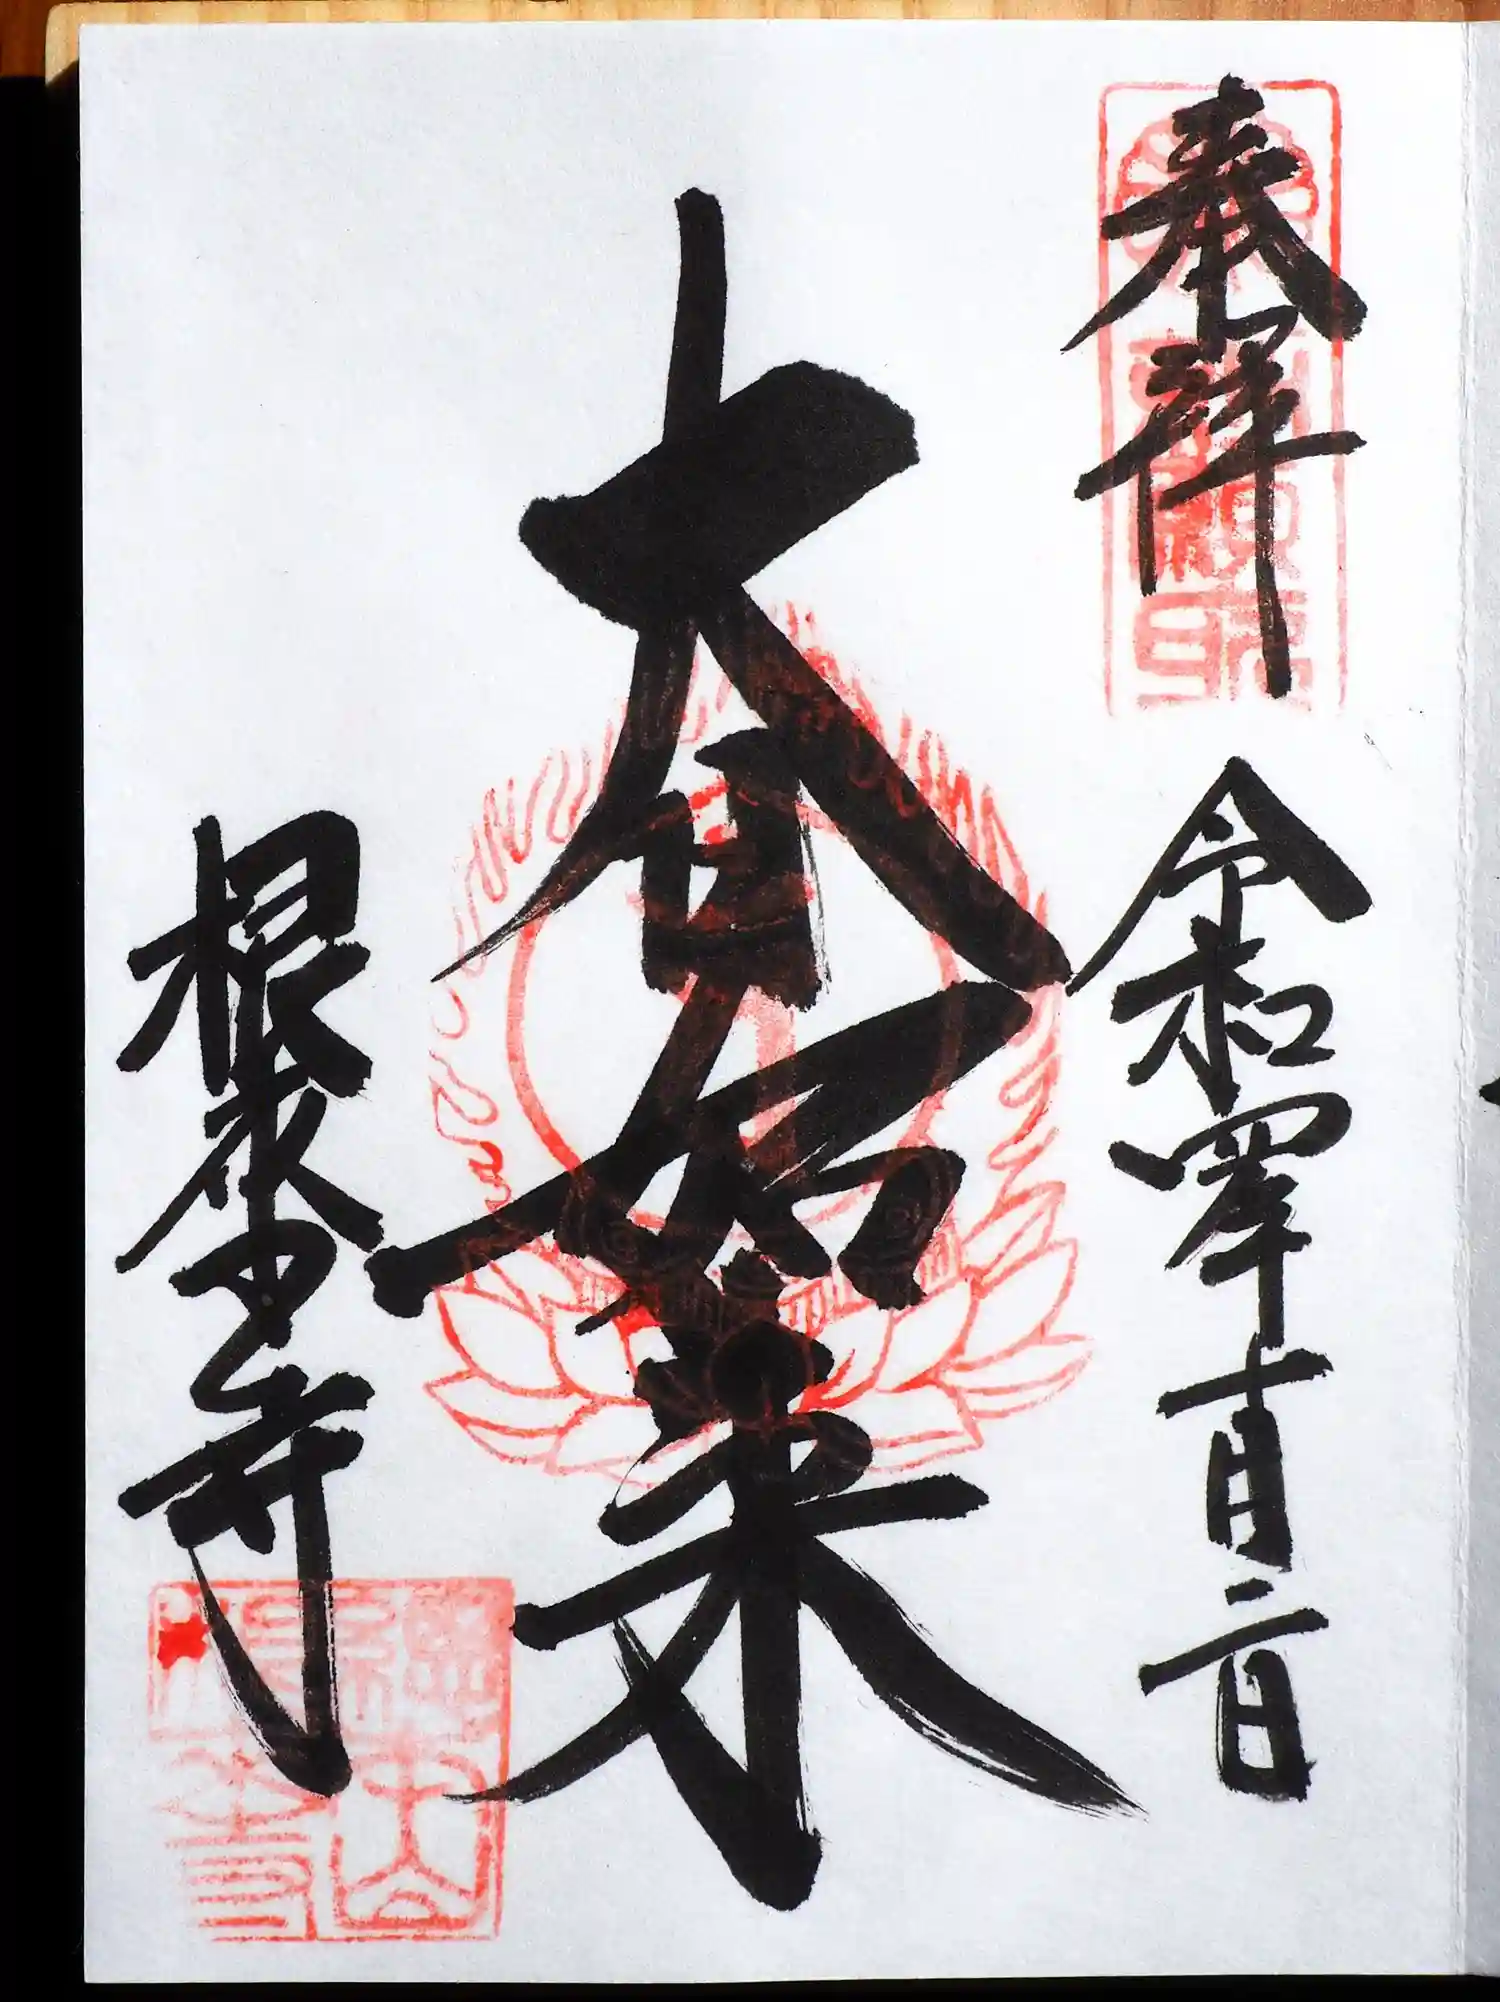 奉拝
令和四年十月二日
大日如来
根来寺